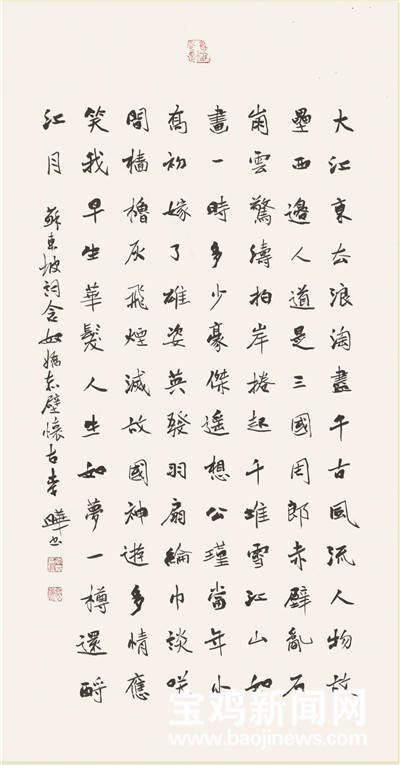 大江東去浪淘盡千古風流人物故
壘西邊人道是三國周郎赤壁亂石
崩雲驚濤拍岸捲起千堆雪江山如
畫一時多少豪傑遥想公瑾當年小
喬初嫁了雄姿英發羽扇綸巾談咲
間檣櫓灰飛煙滅故國神遊多情應
笑我早生華髮人生如夢一樽還酹
江月
蘇東坡詞念奴嬌赤壁懷古李曄书
宝鸡新闻网
www.baojinews.com